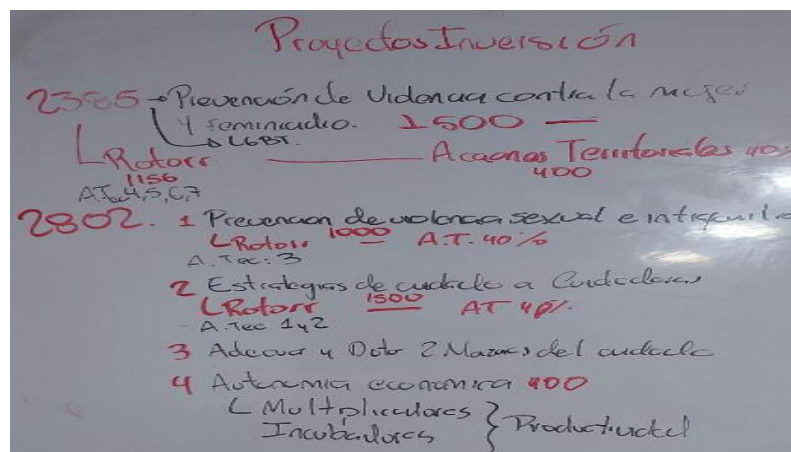 Proyectos Inversión
2385 → Prevención de Violencia contra la mujer
y feminicidio. 1500 —
→ LGBT.
Rotorr — Acciones Territoriales 40%
1156 400
A.T. 4,5,6,7
2802. 1 Prevencion de violencia sexual e intrafamilia
Rotorr 1000 — A.T. 40%
A. Tec: 3
2 Estrategias de cuidado a Cuidadoras
Rotorr 1500 — AT 40%
A. Tec 1 y 2
3 Adecuar y Dotar 2 Manzanas del cuidado
4 Autonomia economica 400
Multiplicadores
Incubadores } Productividad